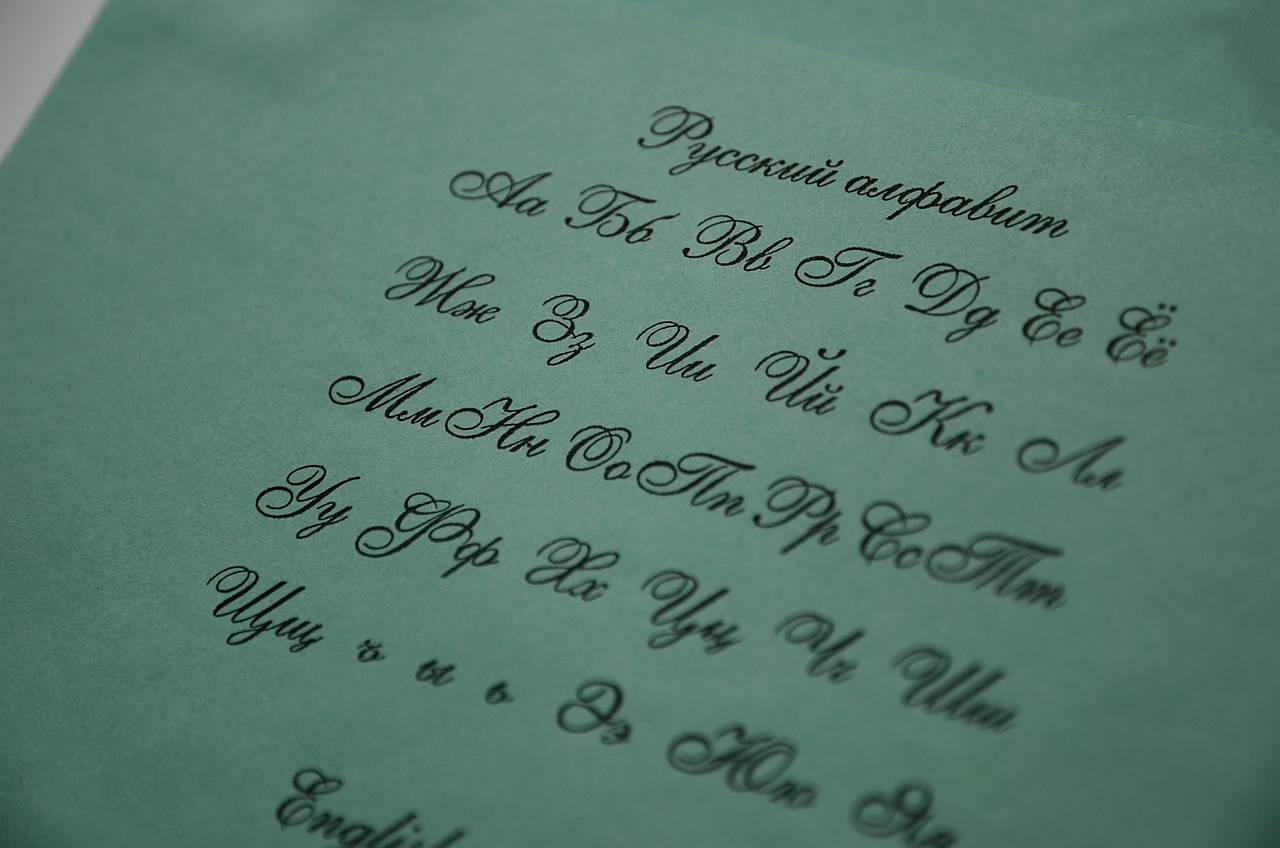 Русский алфавит
Аа Бб Вв Гг Дд Ее Ёё
Жж Зз Ии Йй Кк Лл
Мм Нн Оо Пп Рр Сс Тт
Уу Фф Хх Цц Чч Шш
Щщ ъ ы ь Ээ Юю Яя